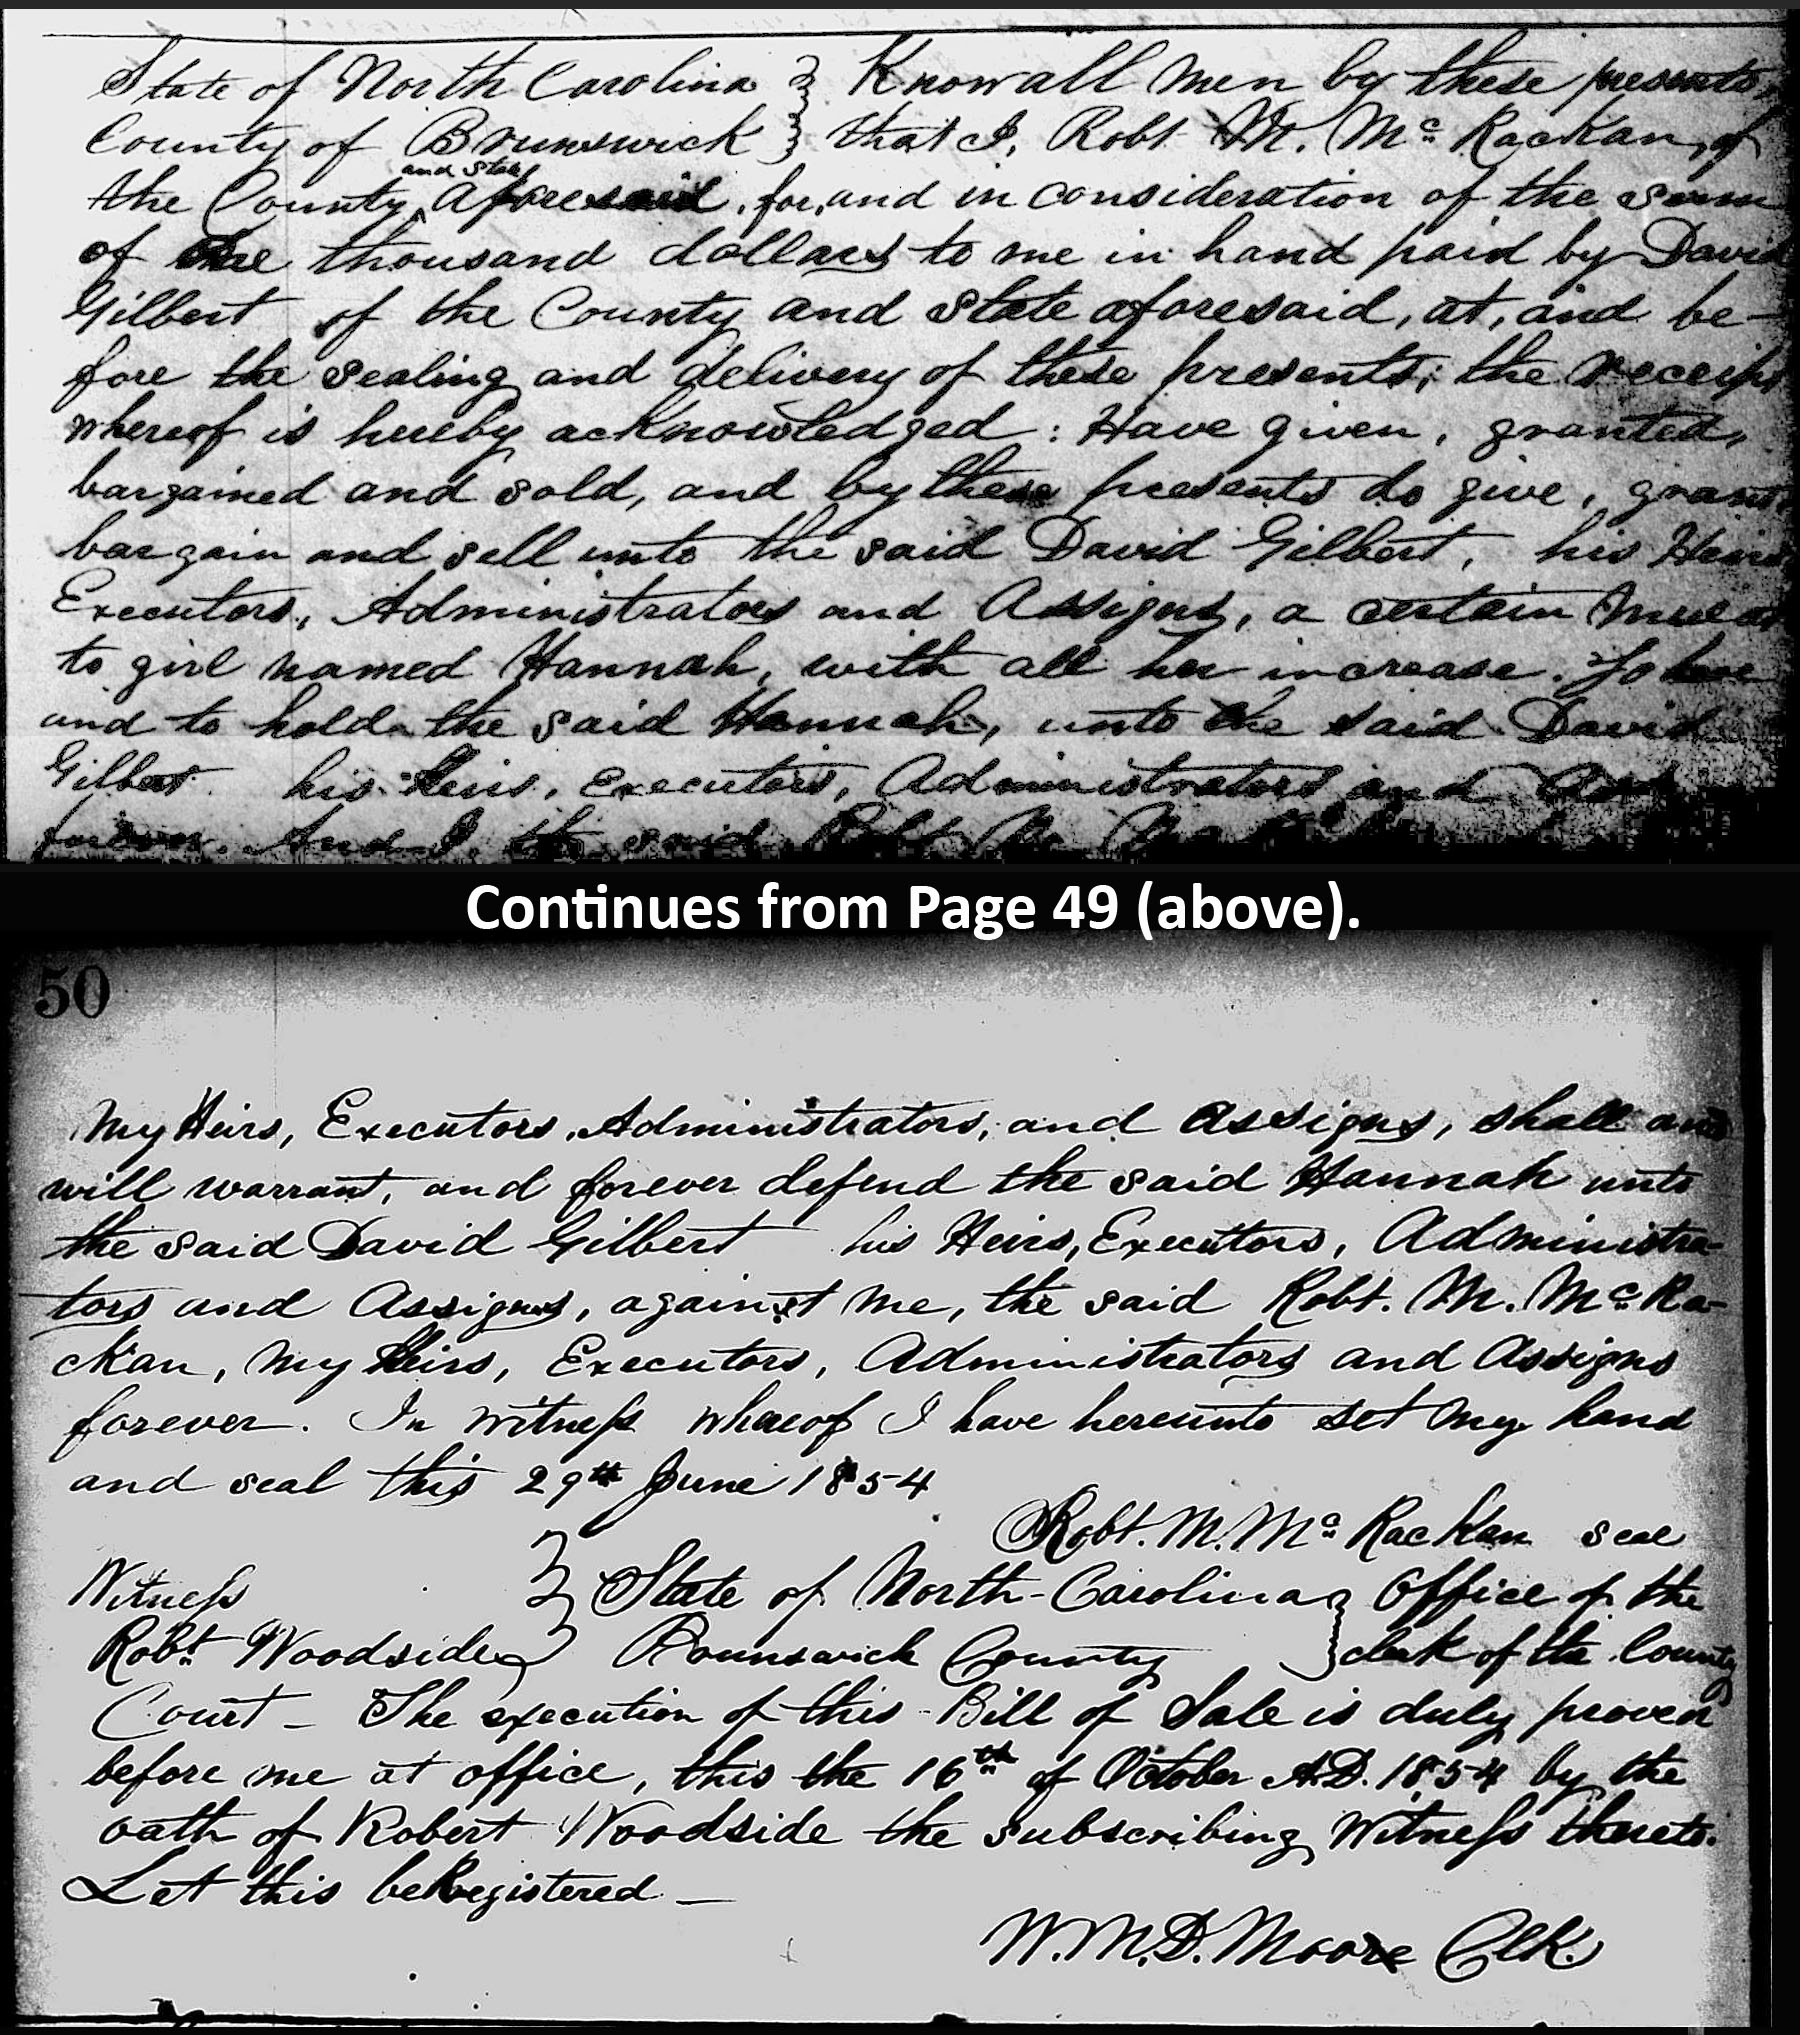 State of North Carolina } Know all men by these presents,
County of Brunswick } that I, Robt M. Mc Rackan, of
and State
the County aforesaid, for, and in consideration of the sum
of one thousand dollars to me in hand paid by David
Gilbert of the County and State aforesaid, at, and be-
fore the sealing and delivery of these presents; the receipt
whereof is hereby acknowledged: Have given, granted,
bargained and sold, and by these presents do give, grant
bargain and sell unto the said David Gilbert, his Heirs
Executors, Administrators and Assigns, a certain Mulat
to girl named Hannah, with all her increase. To have
and to hold the said Hannah, unto the said David
Gilbert his Heirs, Executors, Administrators and
forever. And I, the said Robt M.
Continues from Page 49 (above).
50
My Heirs, Executors, Administrators, and Assigns, shall and
will warrant, and forever defend the said Hannah unto
the said David Gilbert his Heirs, Executors, Administra-
tors and Assigns, against me, the said Robt. M. Mc Ra-
ckan, My Heirs, Executors, Administrators and Assigns
forever. In witness whereof I have hereunto set my hand
and seal this 29th June 1854
Robt. M. Mc Rackan seal
Witness } State of North-Carolina } Office of the
Robt Woodside } Brunswick County } clerk of the County
Court – The execution of this Bill of Sale is duly proven
before me at office, this the 16th of October A.D. 1854 by the
oath of Robert Woodside the subscribing Witness thereto.
Let this be Registered –
W.M.D. Moore Clk.